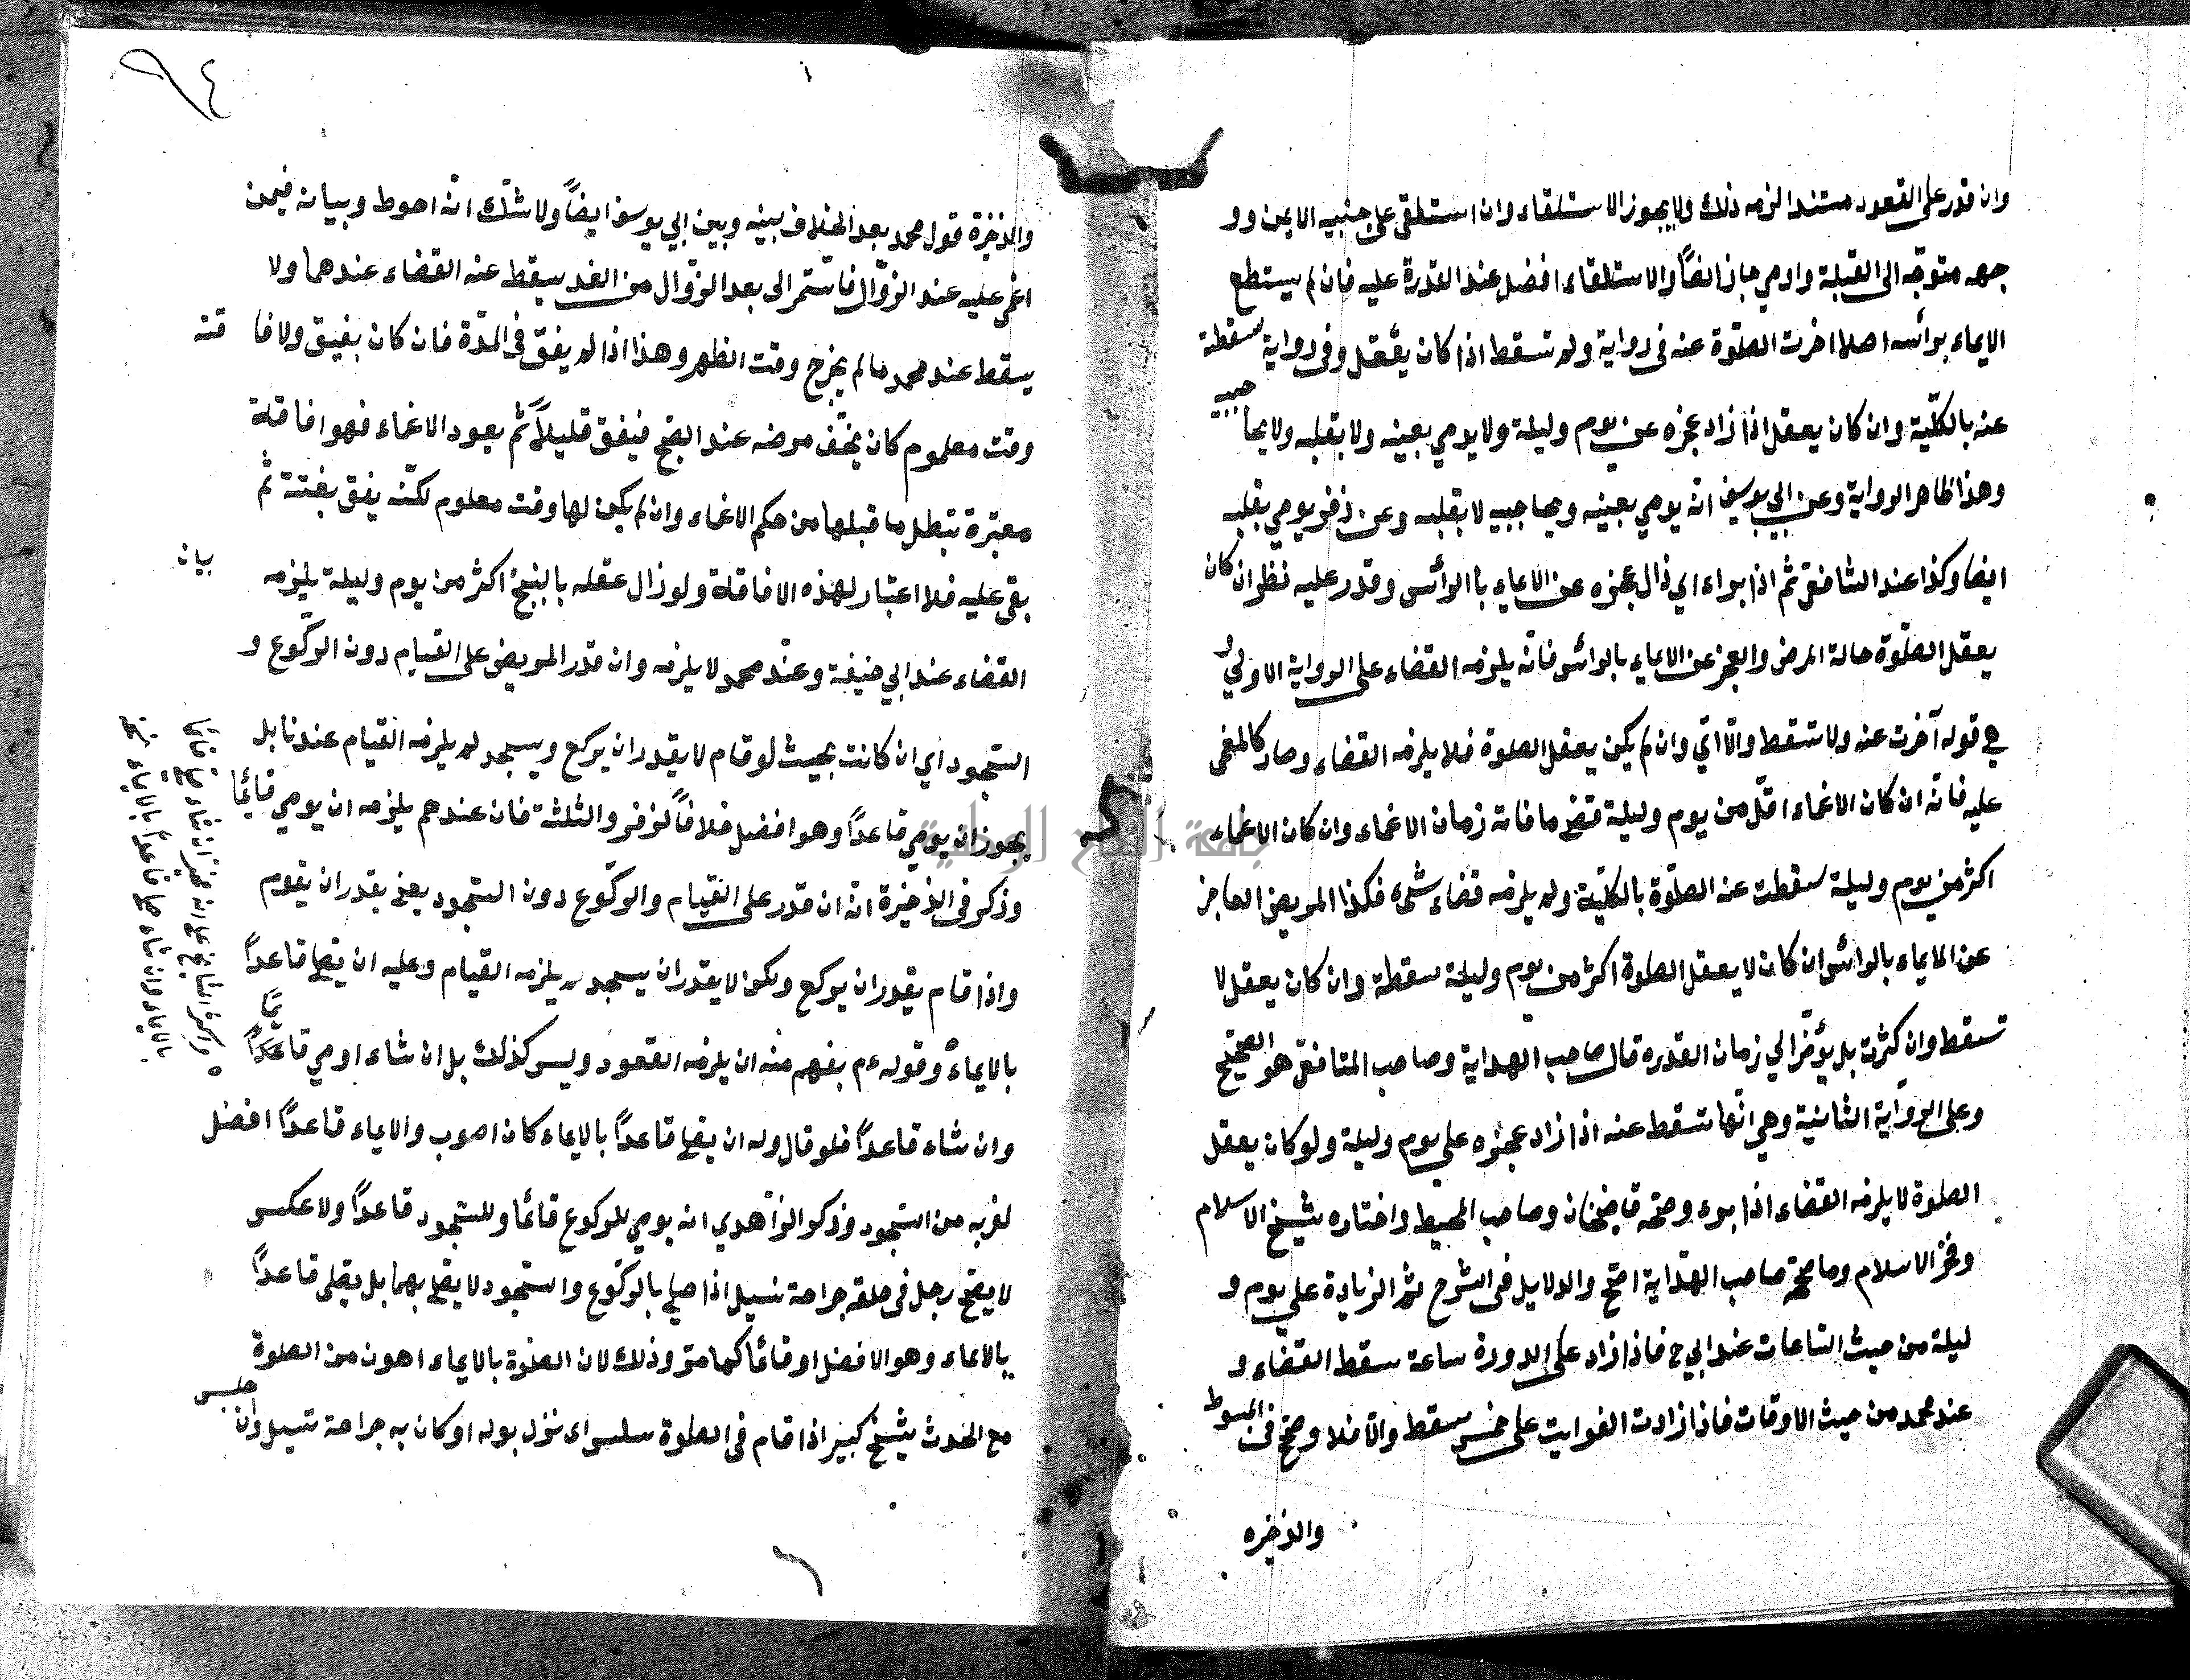 وان قدر على القعود مستندا لزمه ذلك ولا يجوز الاستلقاء وان استلقى على جنبيه الايمن وو
جهه متوجّه الى القبلة واومي جاز ايضاً والاستلقاء افضل عند القدرة عليه فان لم يستطع
الايماء برأسه اصلا اخرت الصلوة عنه فى رواية ولم تسقط اذا كان يعقل وفى رواية سقطة
عنه بالكلّية وان كان يعقل اذا زاد عجزه عن يوم وليلة ولا يومي بعينه ولا بقلبه ولا بحاجبيه
وهذا ظاهر الرواية وعن ابى يوسف انّه يومي بعينيه وبحاجبيه لا بقلبه وعن زفر يومي بقلبه
ايضا وكذا عند الشافعى ثم اذا براء اي زال عجزه عن الايماء بالرأس وقدر عليه نظر ان كان
يعقل الصلّوة حالة المرض والعجز عن الايماء بالرأس فانه يلزمه القضاء على الرواية الاولي و
هي قوله آخرت عنه ولا تسقط والّا اي وان لم يكن يعقل الصلوة فلا يلزمه القضاء وصار كالمغمى
عليه فانه ان كان الاغماء اقلّ من يوم وليلة قضى ما فاته زمان الاغماء وان كان الاغماء
اكثر من يوم وليلة سقطت عنه الصلّوة بالكليّة ولم يلزمه قضاء شئ فكذا المريض العاجز
عن الايماء بالرأس ان كان لا يعقل الصلوة اكثر من يوم وليلة سقطة وان كان يعقل لا
تسقط وان كثرت بل يؤخّر الي زمان القدره قال صاحب الهداية وصاحب المنافع هو الصحيح
وعلى الرواية الثانية وهي انّها تسقط عنه اذا زاد عجزه على يوم وليلة ولو كان يعقل
الصلوة لا يلزمه القضاء اذا برء وصحّه قاضيخان وصاحب المحيط واختاره شيخ الاسلام
وفخر الاسلام وما صحّه صاحب الهداية اصّح والدلايل فى الشرح ثم الزيادة على يوم و
ليلة من حيث السّاعات عند ابي ح فاذا زاد على الدورة ساعة سقط القضاء و
عند محمد من حيث الاوقات فاذا زادت الفوايت على خمس سقط والّا فلا وصحّح فى المبسوط
والذخيره
٩٤
والذخيرة قول محمد بعد الخلاف بينه وبين ابي يوسف ايضاً ولا شّك انّه احوط وبيانه فيمن
اغمى عليه عند الزوّال فاستّمر الى بعد الزوّال من الغد سقط عنه القضاء عندهما ولا
يسقط عند محمد ما لم يخرج وقت الظهر وهذا اذا لم يفق فى المدّة فان كان يفيق ولافاقته
وقت معلوم كان يخفّف مرضه عند الصّبح فيفق قليلاً ثم يعود الاغماء فهو افاقة
معتبرة تبطل ما قبلها من حكم الاغماء وان لم يكن لها وقت معلوم لكنّه يفق بغتة ثم
بقى عليه فلا اعتبار لهذه الافاقة ولو زال عقله بالبنج اكثر من يوم وليلة يلزمه
بيان
القضاء عند ابي حنيفة وعند محمد لا يلزمه وان قدر المريض على القيام دون الركّوع و
السّجود اي ان كانت بحيث لو قام لا يقدر ان يركع ويسجد لم يلزمه القيام عندنا بل
يجوز ان يومي قاعداً وهو افضل خلافاً لزفر والثلثة فان عندهم يلزمه ان يومي قائما
وذكر فى الذخيرة انّه ان قدر على القيام والركّوع دون السّجود يعنى يقدر ان يقوم
واذا قام يقدر ان يركع ولكن لا يقدر ان يسجد لم يلزمه القيام وعليه ان يصّلى قاعداً
بالايماء وقوله ءم يفهم منه ان يلزمه القعود وليس كذلك بل ان شاء اومي قاعداً
وان شاء قاعداً فلو قال وله ان يصلى قاعداً بالايماء كان اصوب والايماء قاعداً افضل
لقربه من السّجود وذكر الزاهدي انه يومي للركوع قائما وللسّجود قاعداً ولا عكس
لا يصحّ رجل فى حلقه جراحة تسيل اذا صلى بالركّوع والسّجود لا يصلى بهما بل يصّلى قاعداً
بالايماء وهو الافضل او قائما كما مرّ وذلك لان الصلوة بالايماء اهون من الصلوة
مع الحدث شيخ كبير اذا قام فى الصلوة سلس اى نزل بوله او كان به جراحة تسيل وان جلس